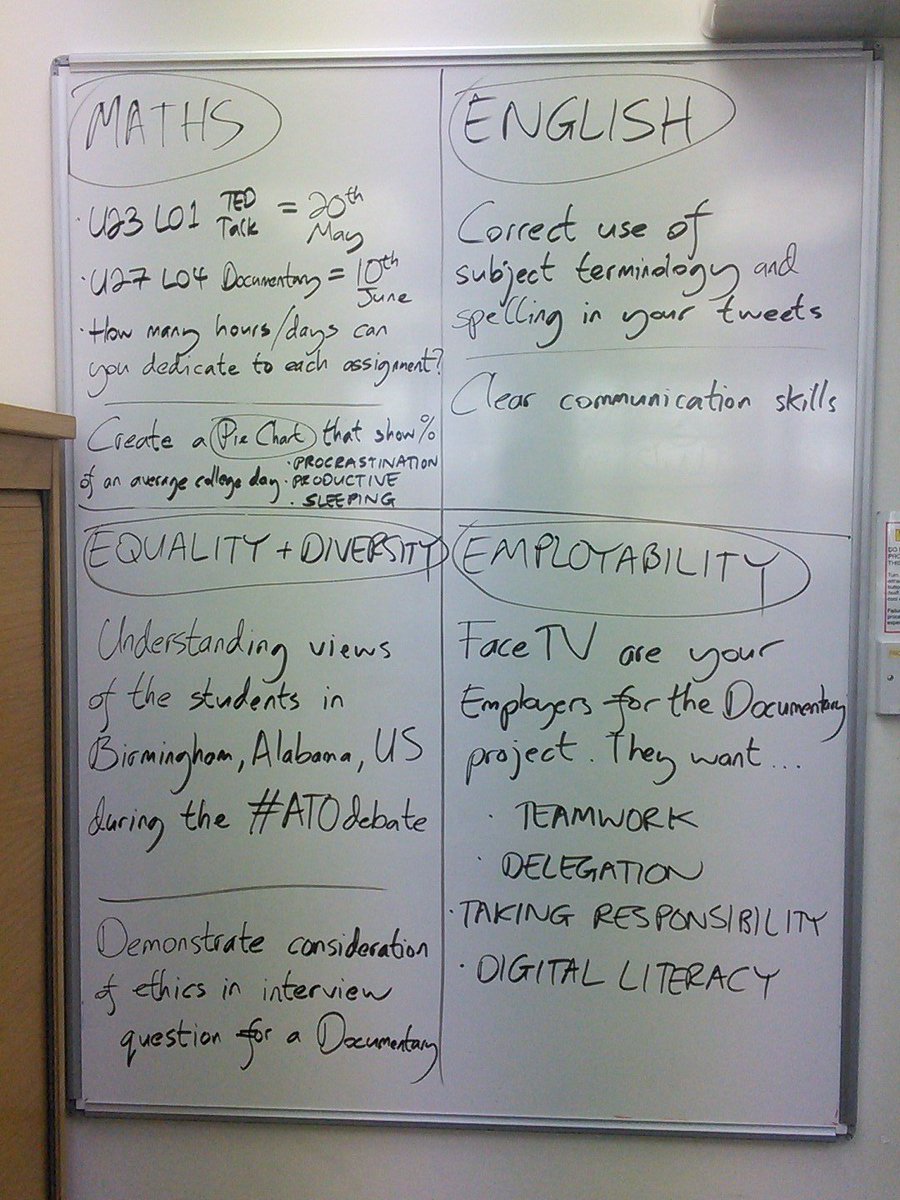 MATHS
· U23 LO1 TED Talk = 20th May
· U27 LO4 Documentary = 10th June
· How many hours/days can
you dedicate to each assignment?
Create a Pie Chart that show %
of an average college day · PROCRASTINATION
· PRODUCTIVE
· SLEEPING
ENGLISH
Correct use of
subject terminology and
spelling in your tweets
Clear communication skills
EQUALITY + DIVERSITY
Understanding views
of the students in
Birmingham, Alabama, US
during the #ATOdebate
Demonstrate consideration
of ethics in interview
question for a Documentary
EMPLOYABILITY
Face TV are your
Employers for the Documentary
project. They want...
· TEAMWORK
· DELEGATION
· TAKING RESPONSIBILITY
· DIGITAL LITERACY